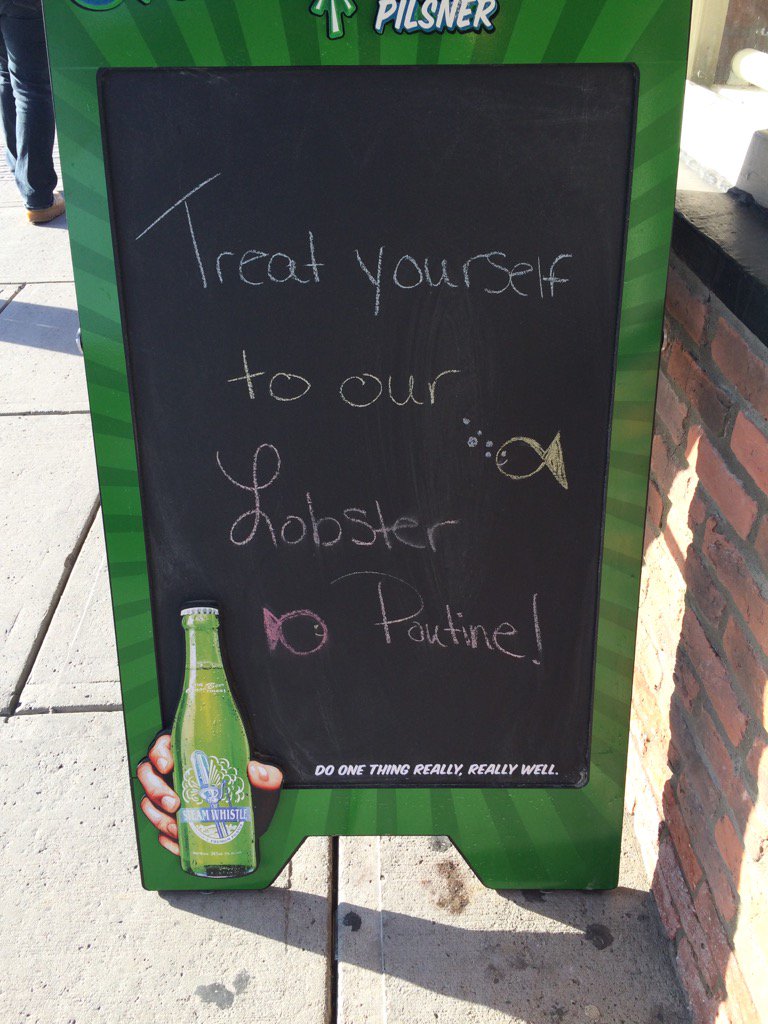 PILSNER
Treat yourself
to our
Lobster
Poutine!
STEAM WHISTLE
DO ONE THING REALLY, REALLY WELL.